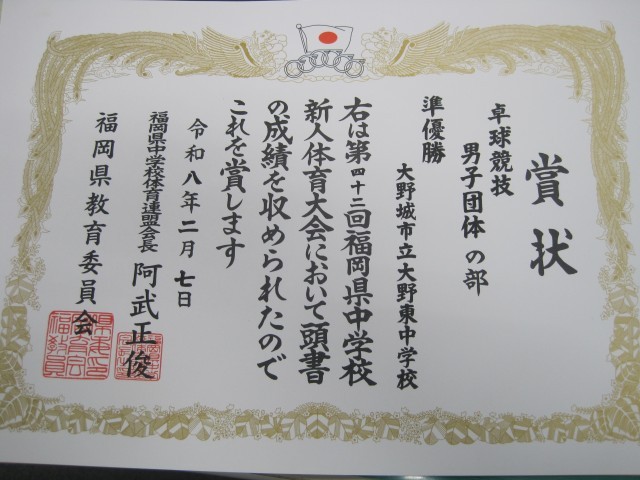 賞状
卓球競技
男子団体の部
準優勝
大野城市立大野東中学校
右は第四十三回福岡県中学校
新人体育大会において頭書
の成績を収められたので
これを賞します
令和八年二月七日
福岡県中学校体育連盟会長 阿武正俊
福岡県教育委員会